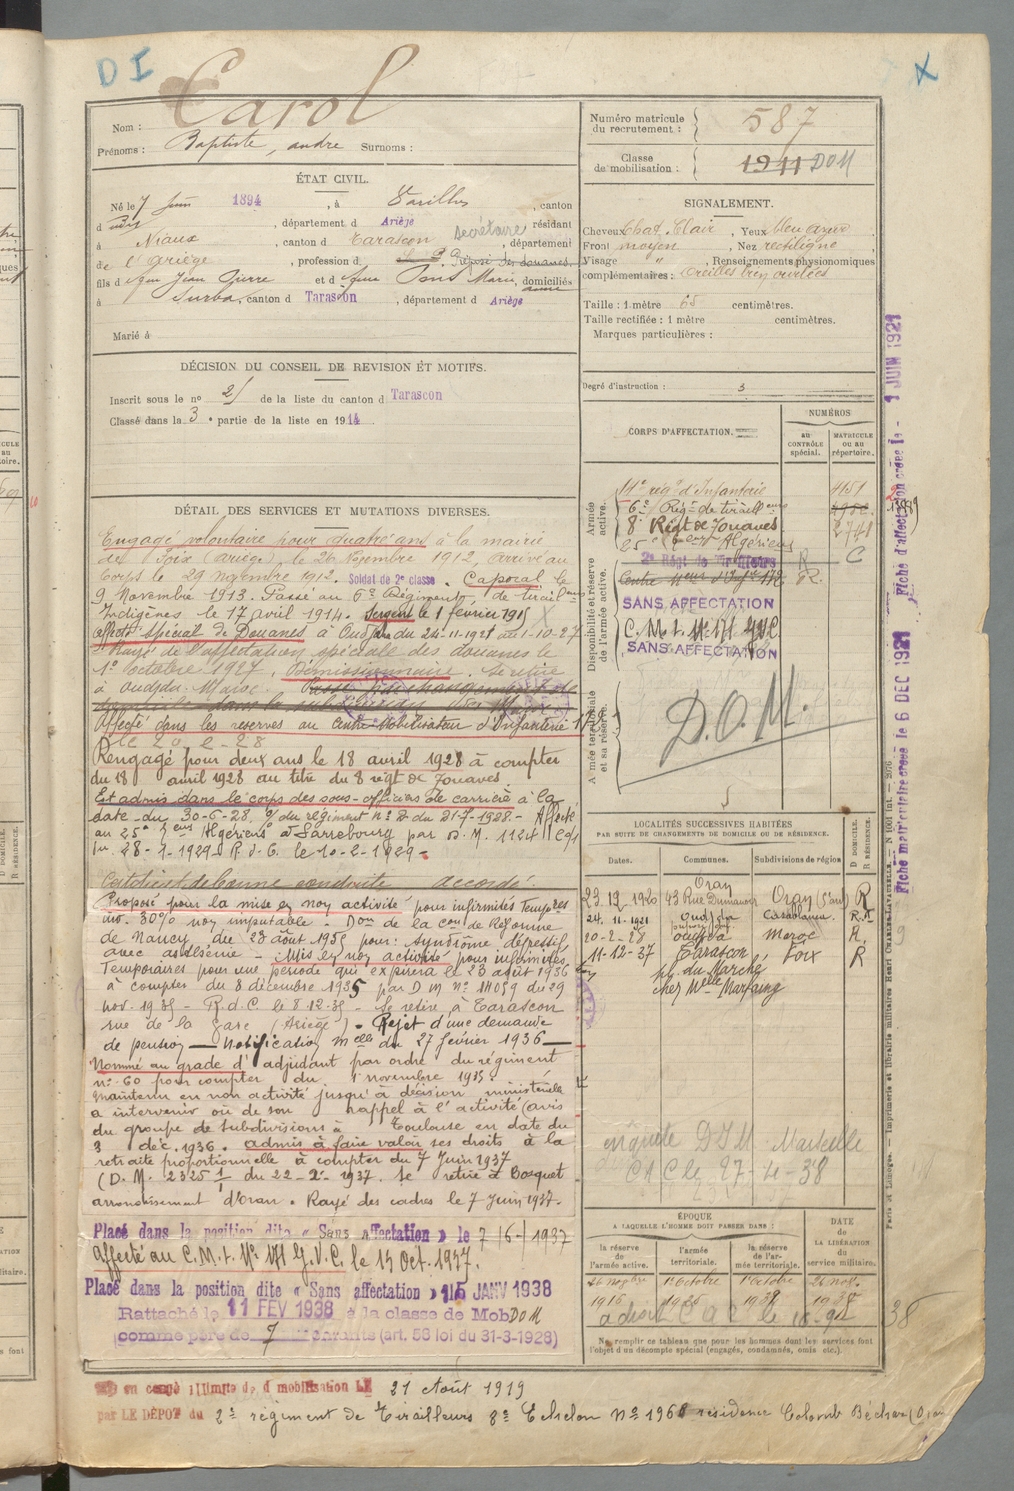 D I
Carol
Nom :
Prénoms : Baptiste, andre Surnoms :
Numéro matricule du recrutement : 587
Classe de mobilisation : 1911 DOM
ÉTAT CIVIL.
Né le 7 Juin 1894, à Varilhes, canton
d dudit, département d Ariège résidant
à Niaux, canton d Tarascon, département
de l'Ariège, profession d secrétaire Préposé des douanes
fils d feu Jean Pierre et d feue Pons Marie, domiciliés
à Surba, canton d Tarascon, département d Ariège
Marié à
SIGNALEMENT.
Cheveux chat. Clair, Yeux bleu azur
Front moyen, Nez rectiligne
Visage " , Renseignements physionomiques
complémentaires : Oreilles très ourlées
Taille : 1 mètre 65 centimètres.
Taille rectifiée : 1 mètre centimètres.
Marques particulières :
Degré d'instruction : 3
DÉCISION DU CONSEIL DE REVISION ET MOTIFS.
Inscrit sous le no 21 de la liste du canton d Tarascon
Classé dans la 3e partie de la liste en 1914.
DÉTAIL DES SERVICES ET MUTATIONS DIVERSES.
Engagé volontaire pour quatre ans à la mairie
de Foix (Ariège), le 26 Novembre 1912, arrivé au
Corps le 29 Novembre 1912. Soldat de 2e classe. Caporal le
9 Novembre 1913. Passé au 6e Régiment de tirailleurs
Indigènes le 17 avril 1914. Sergent le 1 février 1915
affecté Spécial de Douanes à Oudjda du 24-11-1921 au 1-10-27
Rayé de l'affectation spéciale des douanes le
1er octobre 1927. Démissionnaire. Se retire
à Oudjda. Maroc.
Affecté dans les réserves au Centre Mobilisateur d'Infanterie
le 20-2-28
Rengagé pour deux ans le 18 avril 1928 à compter
du 18 avril 1928 au titre du 8 régt de Zouaves.
Et admis dans le corps des sous-officiers de carrière à la
date du 30-6-28, du régiment no du 21-7-1928. - Affecté
au 25e Algériens à Sarrebourg par D.M. 1124
du 28-1-1929. R.d.C. le 10-2-1929.
Certificat de bonne conduite accordé.
Proposé pour la mise en non activité pour infirmités Tempres
inv. 30% non imputable. Don de la con de Réforme
de Nancy, du 23 août 1935 pour : syndrôme dépressif
avec asthénie. - Mis en non activité pour infirmités
Temporaires pour une période qui expirera le 23 août 1936
à compter du 8 décembre 1935 par D M no 11059 du 29
nov. 1935 - R.d.C. le 8.12.35 - Se retire à Tarascon
rue de la Gare (Ariège). Rejet d'une demande
de pension - Notification Melle du 27 février 1936
Nommé au grade d'adjudant par ordre du régiment
no 60 pour compter du 1 novembre 1935.
Maintenu en non activité jusqu'à décision ministérielle
à intervenir ou de son rappel à l'activité (avis
du groupe de Subdivisions à Toulouse en date du
3 déc. 1936. admis à faire valoir ses droits à la
retraite proportionnelle à compter du 7 Juin 1937
(D.M. 2325 du 22-2-1937. Se retire à Bosquet
arrondissement d'Oran. Rayé des cadres le 7 Juin 1937.
Placé dans la position dite « Sans affectation » le 7/6/1937
Affecté au C.M.I. No G.V.C. le 15 Oct. 1937.
Placé dans la position dite « Sans affectation » 15 JANV 1938
Rattaché le 11 FEV 1938 à la classe de Mob DOM
(comme père de 7 enfants (art. 58 loi du 31-3-1928)
CORPS D'AFFECTATION.
NUMÉROS
AU CONTRÔLE spécial.
MATRICULE OU AU répertoire.
Armée active.
14e régt d'Infanterie 4151
6e Régt de tirailleurs
8e Régt de Zouaves 2741
25e Algériens
Disponibilité et réserve de l'armée active.
2e Régt de Tirailleurs R C
SANS AFFECTATION
SANS AFFECTATION
Armée territoriale et sa réserve.
D.O.M.
LOCALITÉS SUCCESSIVES HABITÉES
PAR SUITE DE CHANGEMENTS DE DOMICILE OU DE RÉSIDENCE.
Dates. Communes. Subdivisions de région D DOMICILE. R RÉSIDENCE.
23.12.1920 Oran 43 Rue Dumanoir Oran R
24.11.1921 Oudjda Casablanca R.
20-2-28 oudjda Maroc R.
11-12-37 Tarascon, Foix R
pl. du Marché,
chez Melle Marfaing
enquête D.I.M. Marseille
C A C le 27-4-38
ÉPOQUE
A LAQUELLE L'HOMME DOIT PASSER DANS :
DATE de LA LIBÉRATION du service militaire.
la réserve de l'armée active.
l'armée territoriale.
la réserve de l'armée territoriale.
26 Novbre 1916
1er Octobre 1925
1er Octobre
26 nov. 1938
Ne remplir ce tableau que pour les hommes dont les services font
l'objet d'un décompte spécial (engagés, condamnés, omis etc.).
en congé illimité de démobilisation LE 21 Août 1919
par LE DÉPOT du 2e régiment de Tirailleurs 8e Echelon No 1966 résidence Colomb Béchar (Oran
Fiche d'affectation créée le - 1 JUIN 1921
Fiche matriculaire créée le 6 DEC 1921